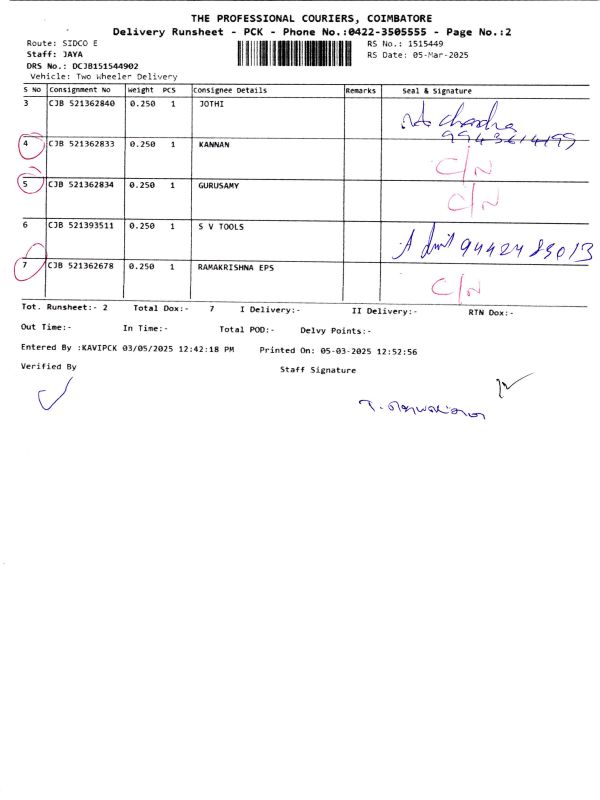 THE PROFESSIONAL COURIERS, COIMBATORE
Delivery Runsheet - PCK - Phone No.:0422-3505555 - Page No.:2
Route: SIDCO E RS No.: 1515449
Staff: JAYA RS Date: 05-Mar-2025
DRS No.: DCJB151544902
Vehicle: Two Wheeler Delivery
S No Consignment No Weight PCS Consignee Details Remarks Seal & Signature
3 CJB 521362840 0.250 1 JOTHI chandra
9943614199
4 CJB 521362833 0.250 1 KANNAN C/N
5 CJB 521362834 0.250 1 GURUSAMY C/N
6 CJB 521393511 0.250 1 S V TOOLS
7 CJB 521362678 0.250 1 RAMAKRISHNA EPS C/N
Tot. Runsheet:- 2 Total Dox:- 7 I Delivery:- II Delivery:- RTN Dox:-
Out Time:- In Time:- Total POD:- Delvy Points:-
Entered By :KAVIPCK 03/05/2025 12:42:18 PM Printed On: 05-03-2025 12:52:56
Verified By Staff Signature